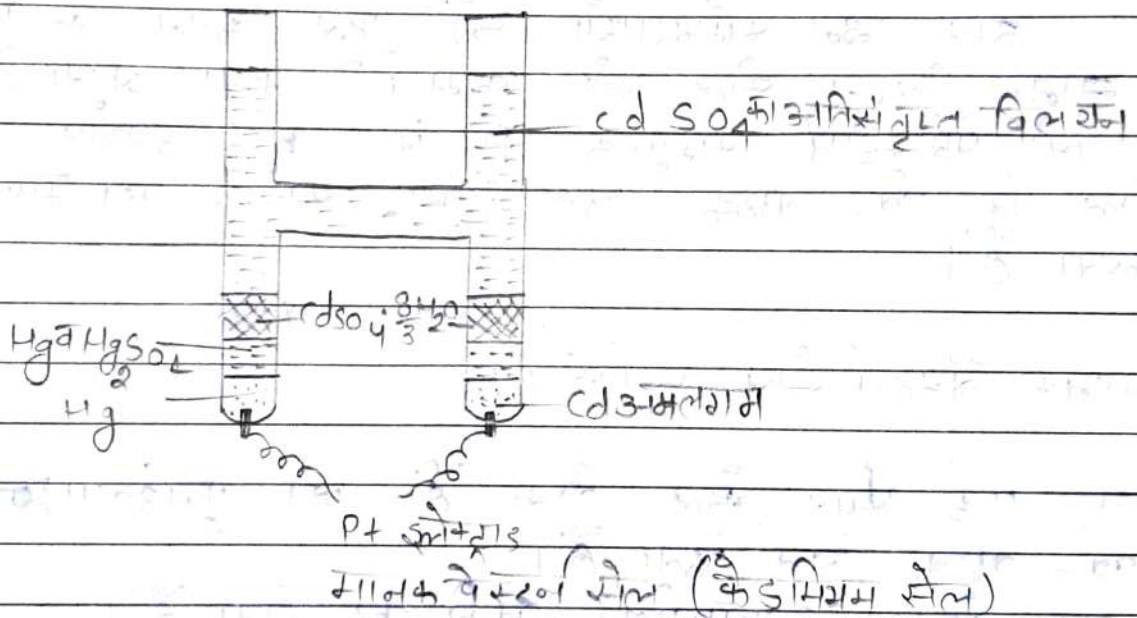 Cd SO4 का अतिसंतृप्त विलयन
CdSO4 · 8/3 H2O
Hg व Hg2SO4
Hg
Cd अमलगम
Pt इलेक्ट्रोड
मानक वेस्टर्न सेल (कैडमियम सेल)